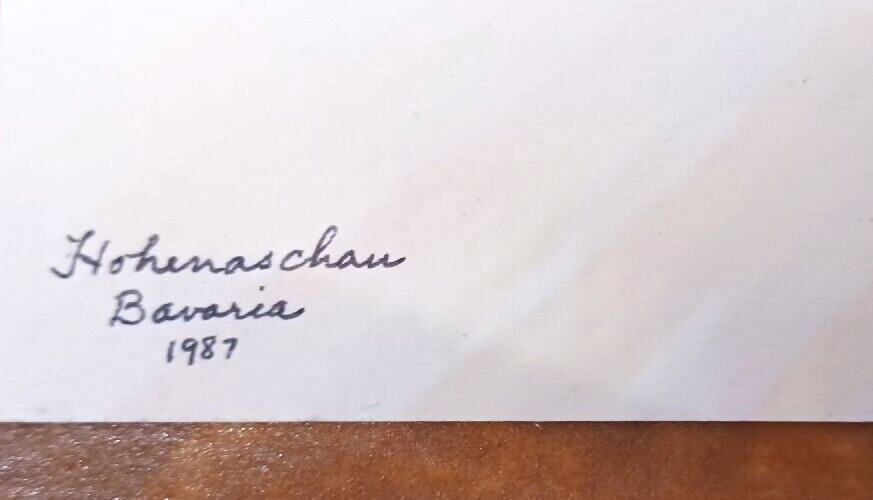 Hohenaschau
Bavaria
1987